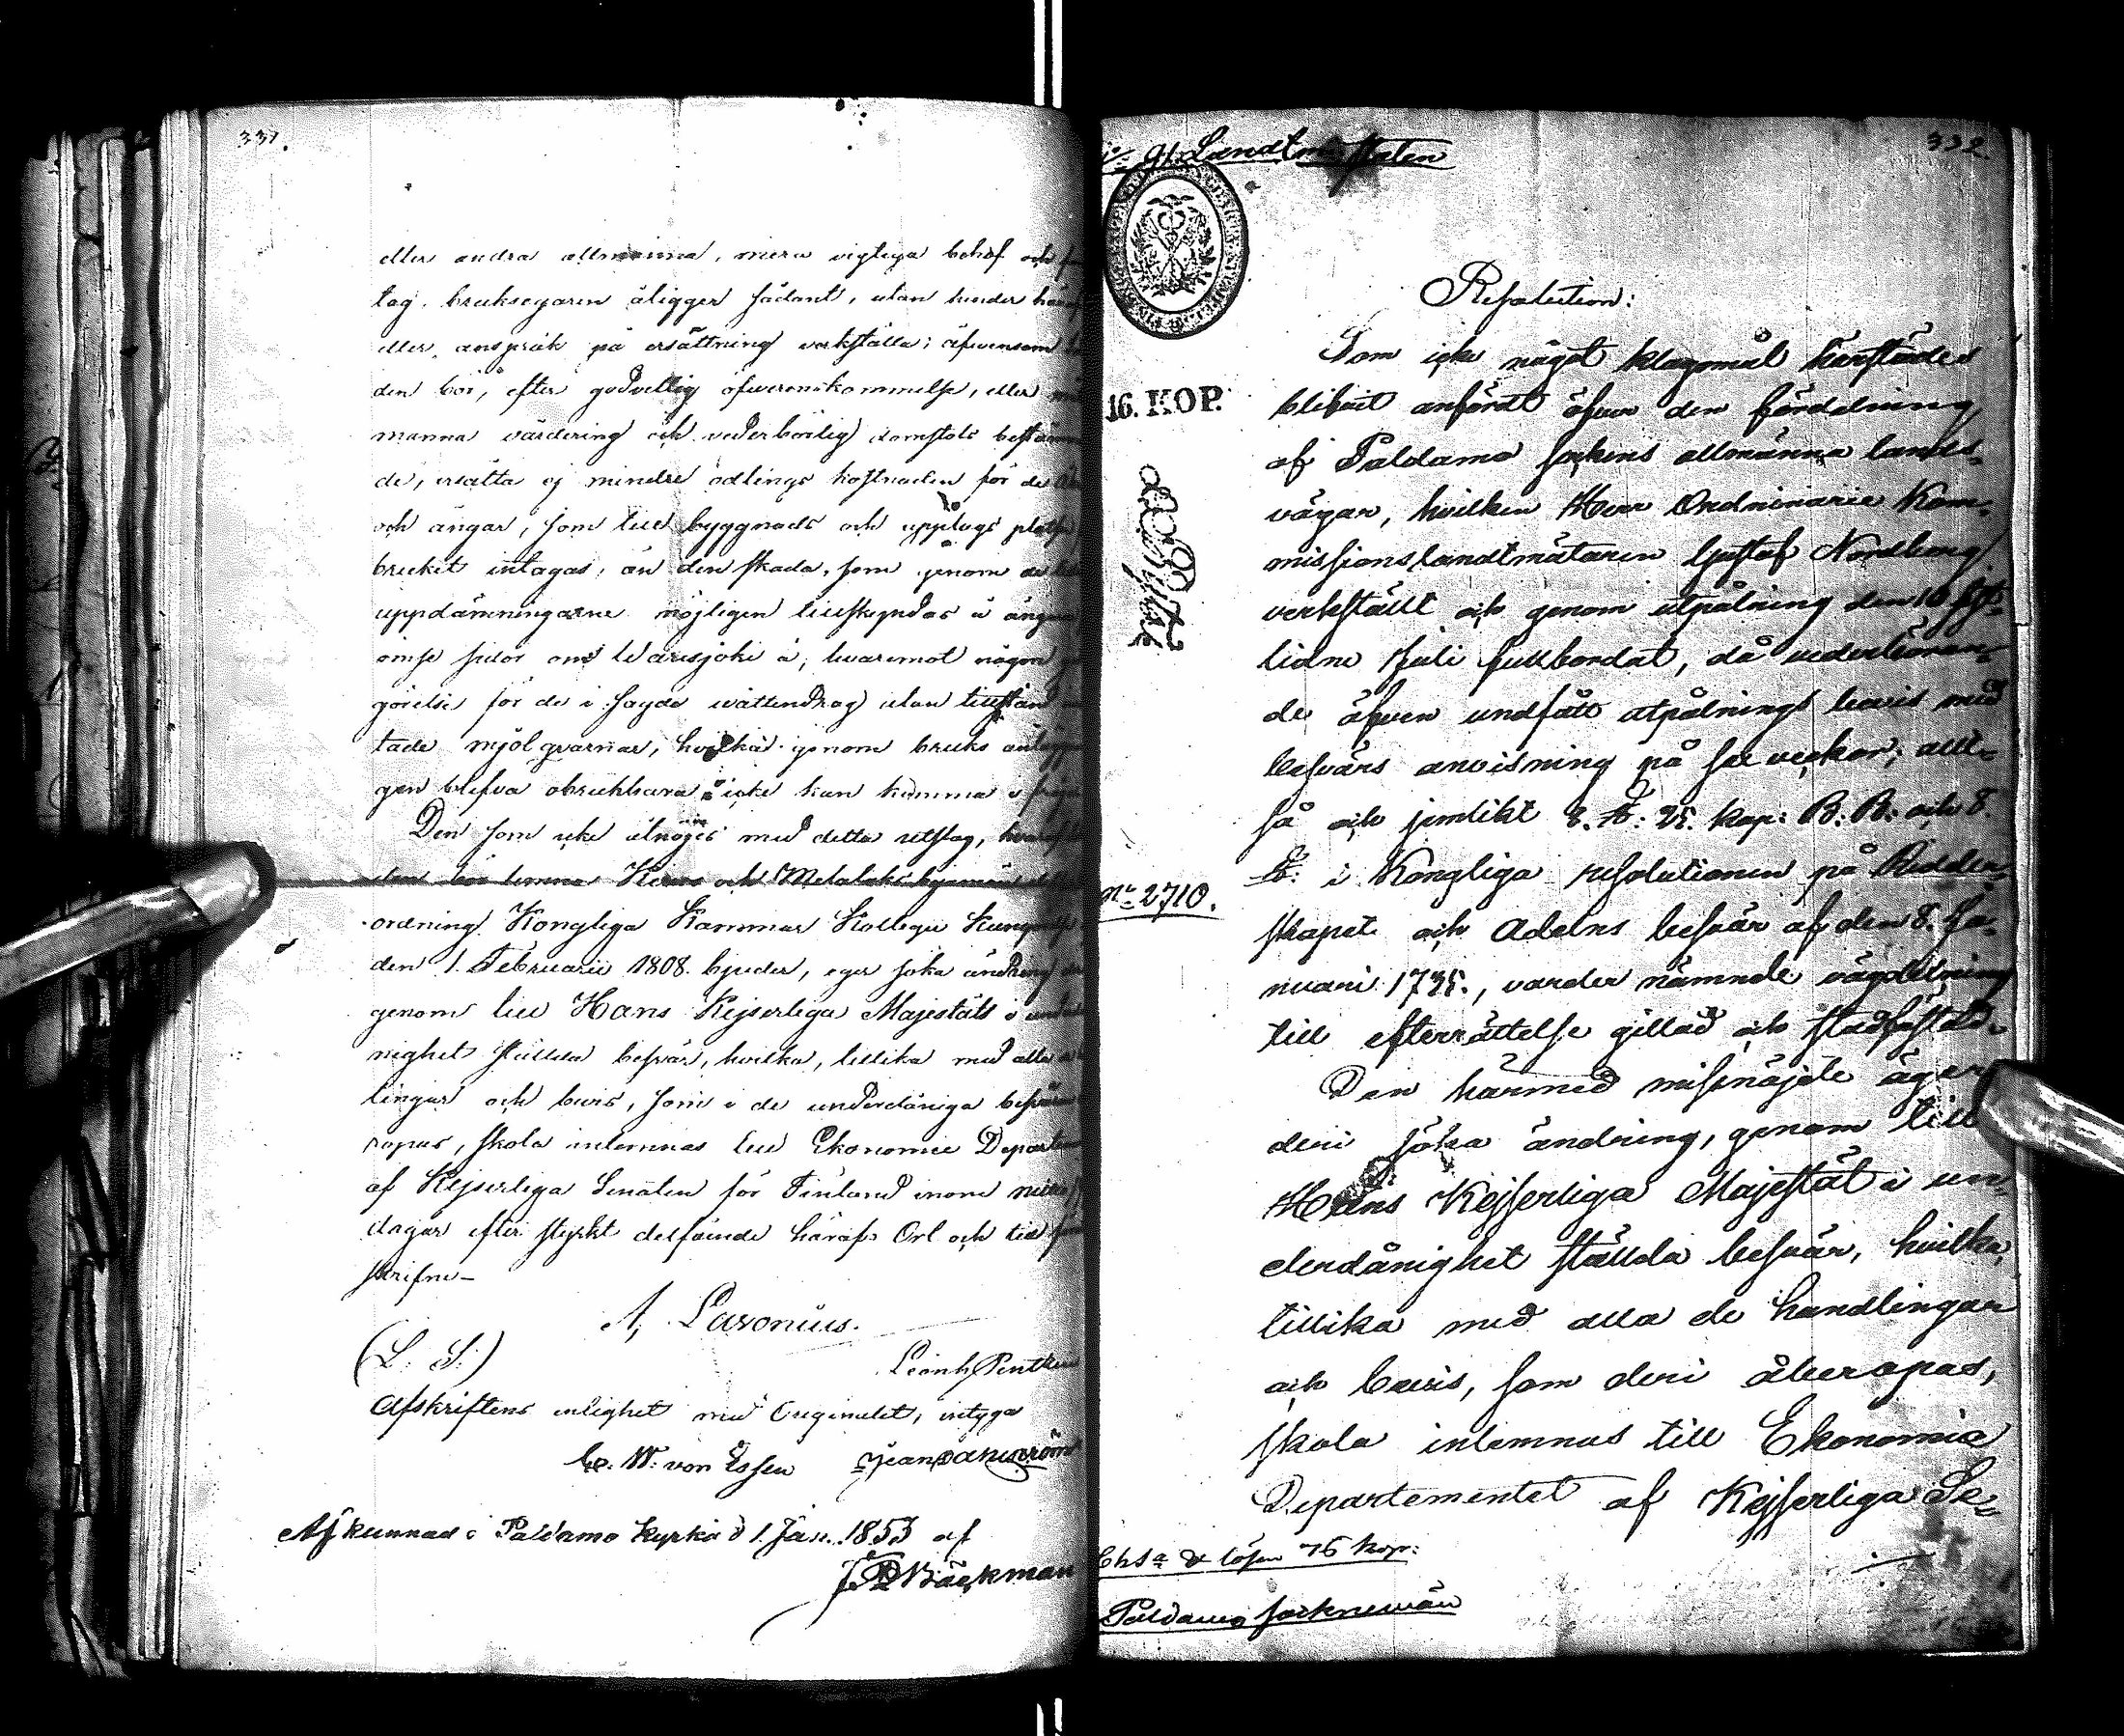 331.
eller andra allmänna, mera vigtiga behof och
tag. bruksegaren åligger sådant, utan hinder
eller anspråk på ersättning verkställa; äfvensom
den bör, efter godvillig öfverenskommelse, eller
manna värdering och vederbörlig domstols bestämm
de, ersätta ej mindre odlings kostnaden för de
och ängar, som till byggnads och upplags plats
bruket intagas, än den skada, som genom de
uppdämningarne möjligen tillskyndas å
ömse sidor om å, hvaremot någon
görelse för de i sagde vattendrag utan tillstånd
tade mjölqvarnar, hvilka genom bruks anlägg
gen blefva obrukbara icke kan komma i fråga
Den som icke åtnöjes med detta utslag, hvaraf
den bör lemna och byamän
ordning Kongliga Kammar Kollegii Kungörelse
den 1. Februarii 1808. bjuder, eger söka ändring
genom till Hans Kejserliga Majestäts i under
nighet ställda besvär, hvilka, tillika med alla
lingar och bevis, som i de underdåniga besvären
ropas, skola inlemnas till Ekonomie Departem
af Kejserliga Senaten för Finland inom
dagar efter styrkt delfående häraf. Ort och tid
skrifne–
A. Lavonius.
(L. S.)
Leonh. Penth
Afskriftens enlighet med Originalet, intyga
C. W. von Essen Jean
Afkunnad i Paldamo Kyrka d 1. Jan. 1853 af
Bäckman
332.
No 91. Landtm. staten
Resolution:
16. KOP.
Som icke något klagomål härstädes
blifvit anfördt öfver den fördelning
af Paldamo sockens allmänna lands-
vägar, hvilken Herr Ordninarie Kom-
missionslandtmätaren Gustaf Nordberg
verkställt och genom utpålning den 10 sist-
lidne Juli fullbordat, då vederböran-
de äfven undfått utpålnings bevis med
besvärs anvisning på sex veckor; allt-
så och jemlikt 8. §: 25. kap: B: B: och 8.
§: i Kongliga resolutionen på Ridder-
skapet och Adelns besvär af den 8. Ja-
nuari 1735., varder nämnde vägdelning
till efterrättelse gillad och stadfästad.
Den härmed missnöjde äger
deri söka ändring, genom till
Hans Kejserliga Majestät i un-
derdånighet ställda besvär, hvilka,
tillika med alla de handlingar
och bevis, som deri åberopas,
skola inlemnas till Ekonomie
Departementet af Kejserliga Se-
No 2710.
Chsa & lösen 76 kop:
Paldamo sockenemän